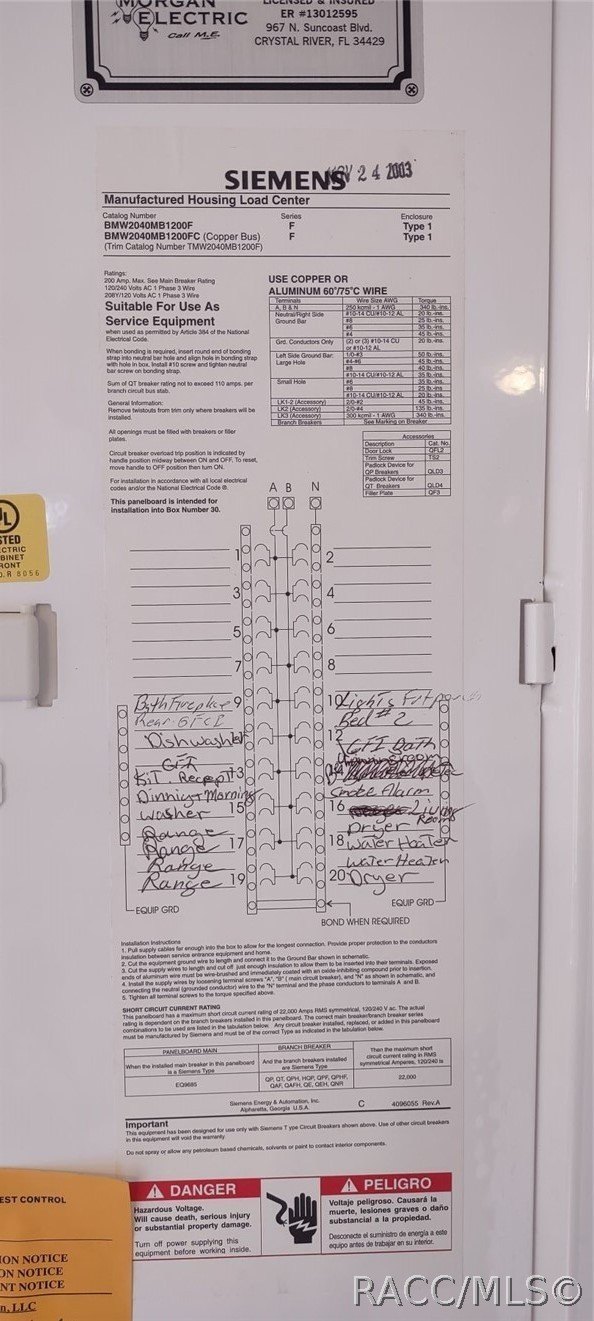 MORGAN
ELECTRIC
Call M.E.
LICENSED & INSURED
ER #13012595
967 N. Suncoast Blvd.
CRYSTAL RIVER, FL 34429
NOV 24 2003
SIEMENS
Manufactured Housing Load Center
Catalog Number Series Enclosure
BMW2040MB1200F F Type 1
BMW2040MB1200FC (Copper Bus) F Type 1
(Trim Catalog Number TMW2040MB1200F)
Ratings:
200 Amp. Max. See Main Breaker Rating
120/240 Volts AC 1 Phase 3 Wire
208Y/120 Volts AC 1 Phase 3 Wire
Suitable For Use As
Service Equipment
when used as permitted by Article 384 of the National
Electrical Code.
When bonding is required, insert round end of bonding
strap into neutral bar hole and align hole in bonding strap
with hole in box. Install #10 screw and tighten neutral
bar screw on bonding strap.
Sum of QT breaker rating not to exceed 110 amps. per
branch circuit bus stab.
General Information:
Remove twistouts from trim only where breakers will be
installed.
All openings must be filled with breakers or filler
plates.
Circuit breaker overload trip position is indicated by
handle position midway between ON and OFF. To reset,
move handle to OFF position then turn ON.
For installation in accordance with all local electrical
codes and/or the National Electrical Code ®.
This panelboard is intended for
installation into Box Number 30.
USE COPPER OR
ALUMINUM 60°/75°C WIRE
Terminals Wire Size AWG Torque
A, B & N 250 kcmil - 1 AWG 340 lb.-ins.
Neutral/Right Side #10-14 CU/#10-12 AL 20 lb.-ins.
Ground Bar #8 25 lb.-ins.
#6 35 lb.-ins.
#4 45 lb.-ins.
Grd. Conductors Only (2) or (3) #10-14 CU
or #10-12 AL
Left Side Ground Bar: 1/0-#3 50 lb.-ins.
Large Hole #4-#6 45 lb.-ins.
#8 40 lb.-ins.
#10-14 CU/#10-12 AL 35 lb.-ins.
Small Hole #6 35 lb.-ins.
#8 25 lb.-ins.
#10-14 CU/#10-12 AL 20 lb.-ins.
LK1-2 (Accessory) 2/0-#2 45 lb.-ins.
LK2 (Accessory) 2/0-#4 135 lb.-ins.
LK3 (Accessory) 300 kcmil - 1 AWG 340 lb.-ins.
Branch Breakers See Marking on Breaker
Accessories
Description Cat. No.
Door Lock QFL2
Trim Screw TS2
Padlock Device for
QP Breakers QLD3
Padlock Device for
QT Breakers QLD4
Filler Plate QF3
A B N
1 2
3 4
5 6
7 8
Bath Fireplace 9 10 Lights Frt porch
Rear GFCI Bed #2
Dishwasher 12
GFI GFI Bath
Kit. Recept 13
Dinning + Morning Smoke Alarm
washer 15 16 Living Rooms
Range Dryer
Range 17 18 Water Heater
Range Water Heater
Range 19 20 Dryer
EQUIP GRD EQUIP GRD
BOND WHEN REQUIRED
Installation Instructions
1. Pull supply cables far enough into the box to allow for the longest connection. Provide proper protection to the conductors
insulation between service entrance equipment and home.
2. Cut the equipment ground wire to length and connect it to the Ground Bar shown in schematic.
3. Cut the supply wires to length and cut off just enough insulation to allow them to be inserted into their terminals. Exposed
ends of aluminum wire must be wire-brushed and immediately coated with an oxide-inhibiting compound prior to insertion.
4. Install the supply wires by loosening terminal screws "A", "B" ( main circuit breaker), and "N" as shown in schematic, and
connecting the neutral (grounded conductor) wire to the "N" terminal and the phase conductors to terminals A and B.
5. Tighten all terminal screws to the torque specified above.
SHORT CIRCUIT CURRENT RATING
This panelboard has a maximum short circuit current rating of 22,000 Amps RMS symmetrical, 120/240 V ac. The actual
rating is dependent on the branch breakers installed in this panelboard. The correct main breaker/branch breaker series
combinations to be used are listed in the tabulation below. Any circuit breaker installed, replaced, or added in this panelboard
must be manufactured by Siemens and must be of the correct Type as indicated in the tabulation below.
PANELBOARD MAIN BRANCH BREAKER Then the maximum short
circuit current rating in RMS
symmetrical Amperes, 120/240 is
When the installed main breaker in this panelboard
is a Siemens Type And the branch breakers installed
are Siemens Type
EQ9685 QP, QT, QPH, HQP, QPF, QPHF,
QAF, QAFH, QE, QEH, QNR 22,000
Siemens Energy & Automation, Inc.
Alpharetta, Georgia U.S.A. C 4096055 Rev.A
Important
This equipment has been designed for use only with Siemens T type Circuit Breakers shown above. Use of other circuit breakers
in this equipment will void the warranty.
Do not spray or allow any petroleum based chemicals, solvents or paint to contact interior components.
DANGER
Hazardous Voltage.
Will cause death, serious injury
or substantial property damage.
Turn off power supplying this
equipment before working inside.
PELIGRO
Voltaje peligroso. Causará la
muerte, lesiones graves o daño
substancial a la propiedad.
Desconecte el suministro de energía a este
equipo antes de trabajar en su interior.
UL
STED
CTRIC
BINET
RONT
O.R 8056
EST CONTROL
ION NOTICE
ON NOTICE
NT NOTICE
n, LLC
RACC/MLS©